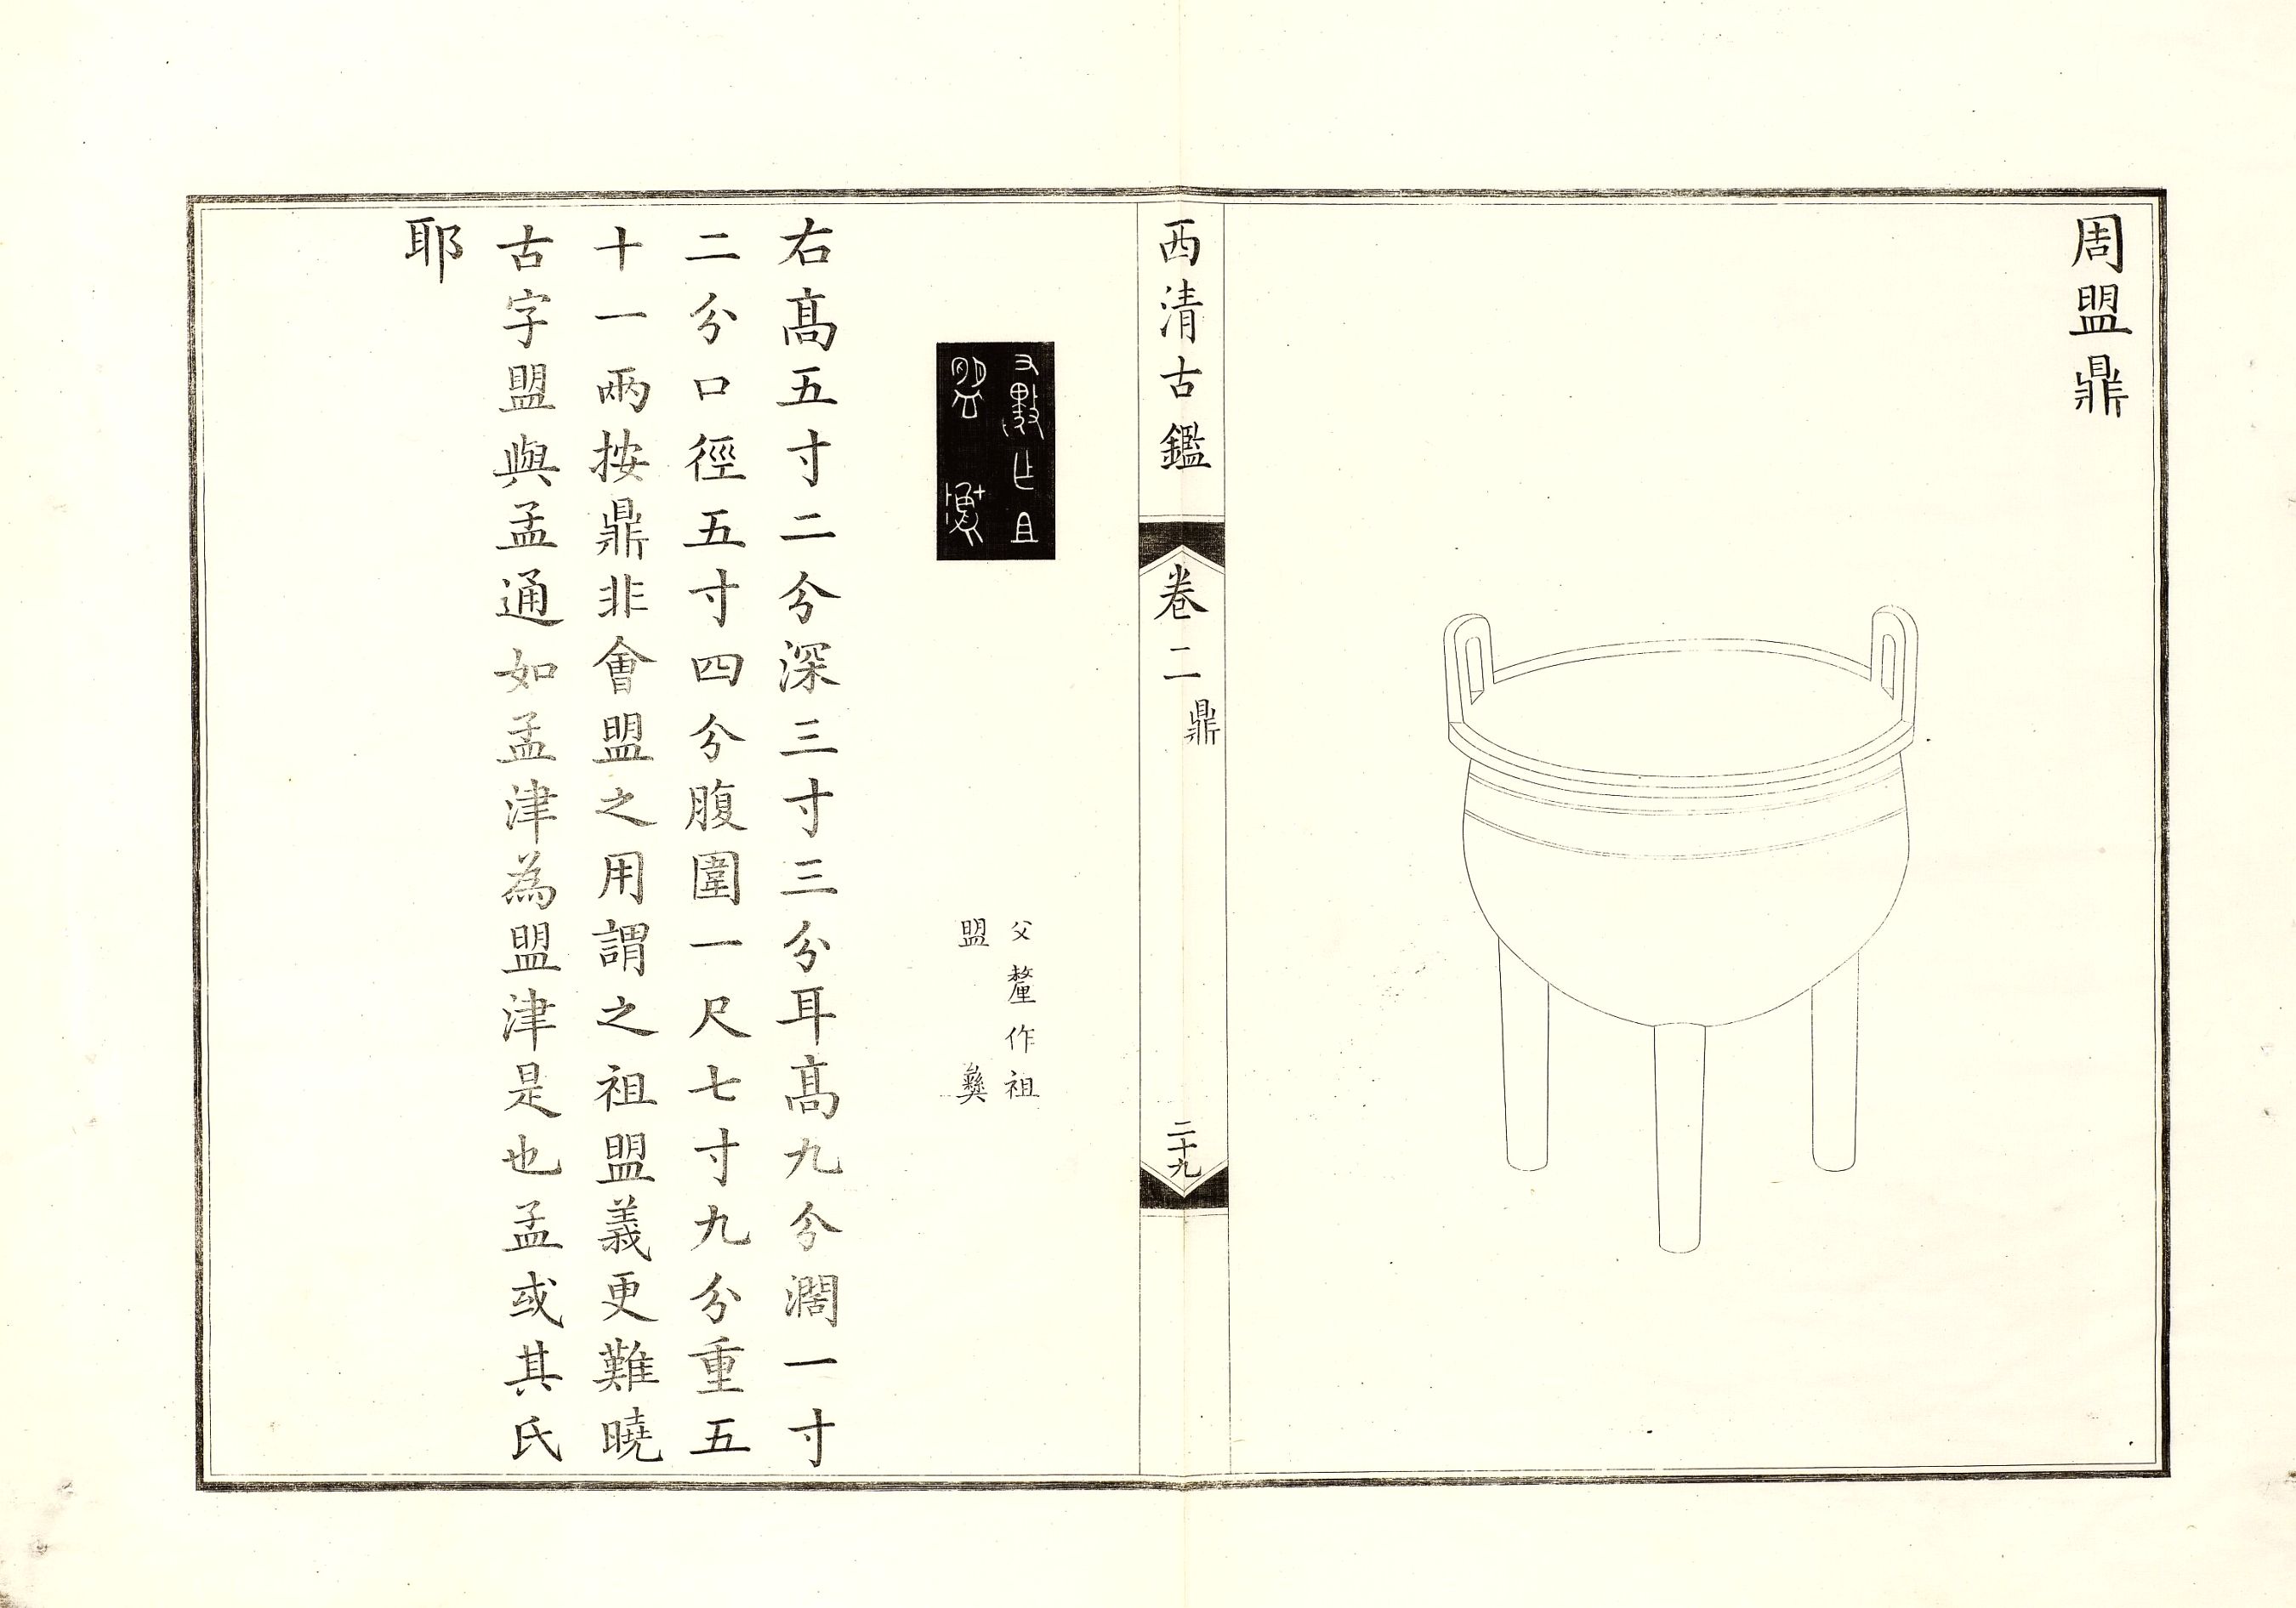 周盟鼎
西清古鑑 卷二 鼎 二十九
父釐作祖
盟彝
右高五寸二分深三寸三分耳高九分濶一寸
二分口徑五寸四分腹圍一尺七寸九分重五
十一兩按鼎非會盟之用謂之祖盟義更難曉
古字盟與孟通如孟津為盟津是也孟或其氏
耶